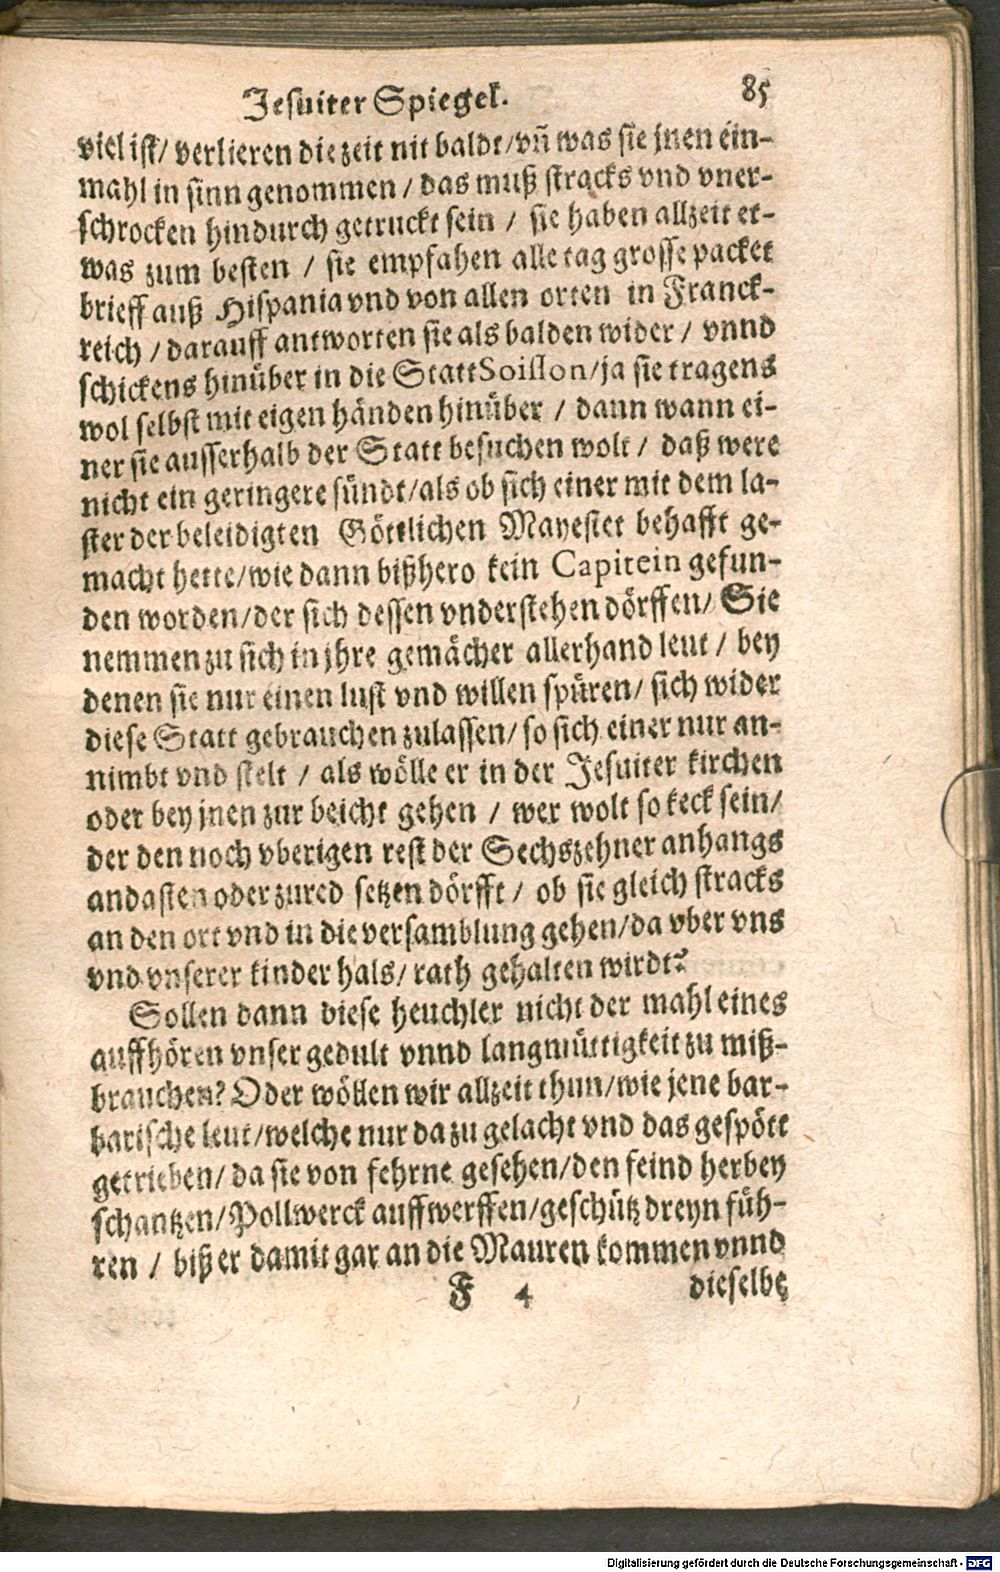 Jesuiter Spiegel. 85
viel ist/ verlieren die zeit nit baldt/ vñ was sie jnen ein-
mahl in sinn genommen / das muß stracks vnd vner-
schrocken hindurch getruckt sein / sie haben allzeit et-
was zum besten / sie empfahen alle tag grosse packet
brieff auß Hispania vnd von allen orten in Franck-
reich / darauff antworten sie als balden wider / vnnd
schickens hinüber in die Statt Soisson/ ja sie tragens
wol selbst mit eigen händen hinüber / dann wann ei-
ner sie ausserhalb der Statt besuchen wolt / daß were
nicht ein geringere sündt/ als ob sich einer mit dem la-
ster der beleidigten Göttlichen Mayestet behafft ge-
macht hette/ wie dann bißhero kein Capitein gefun-
den worden/ der sich dessen vnderstehen dörffen/ Sie
nemmen zu sich in jhre gemächer allerhand leut / bey
denen sie nur einen lust vnd willen spüren/ sich wider
diese Statt gebrauchen zulassen/ so sich einer nur an-
nimbt vnd stelt / als wölle er in der Jesuiter kirchen
oder bey jnen zur beicht gehen / wer wolt so keck sein/
der den noch vberigen rest der Sechszehner anhangs
andasten oder zured setzen dörfft / ob sie gleich stracks
an den ort vnd in die versamblung gehen/ da vber vns
vnd vnserer kinder hals/ rath gehalten wirdt?
Sollen dann diese heuchler nicht der mahl eines
auffhören vnser gedult vnnd langmüttigkeit zu miß-
brauchen? Oder wöllen wir allzeit thun/ wie jene bar-
barische leut/ welche nur dazu gelacht vnd das gespött
getrieben/ da sie von fehrne gesehen/ den feind herbey
schantzen/ Pollwerck auffwerffen/ geschütz dreyn füh-
ren / biß er damit gar an die Mauren kommen vnnd
F 4 dieselbe
Digitalisierung gefördert durch die Deutsche Forschungsgemeinschaft - DFG